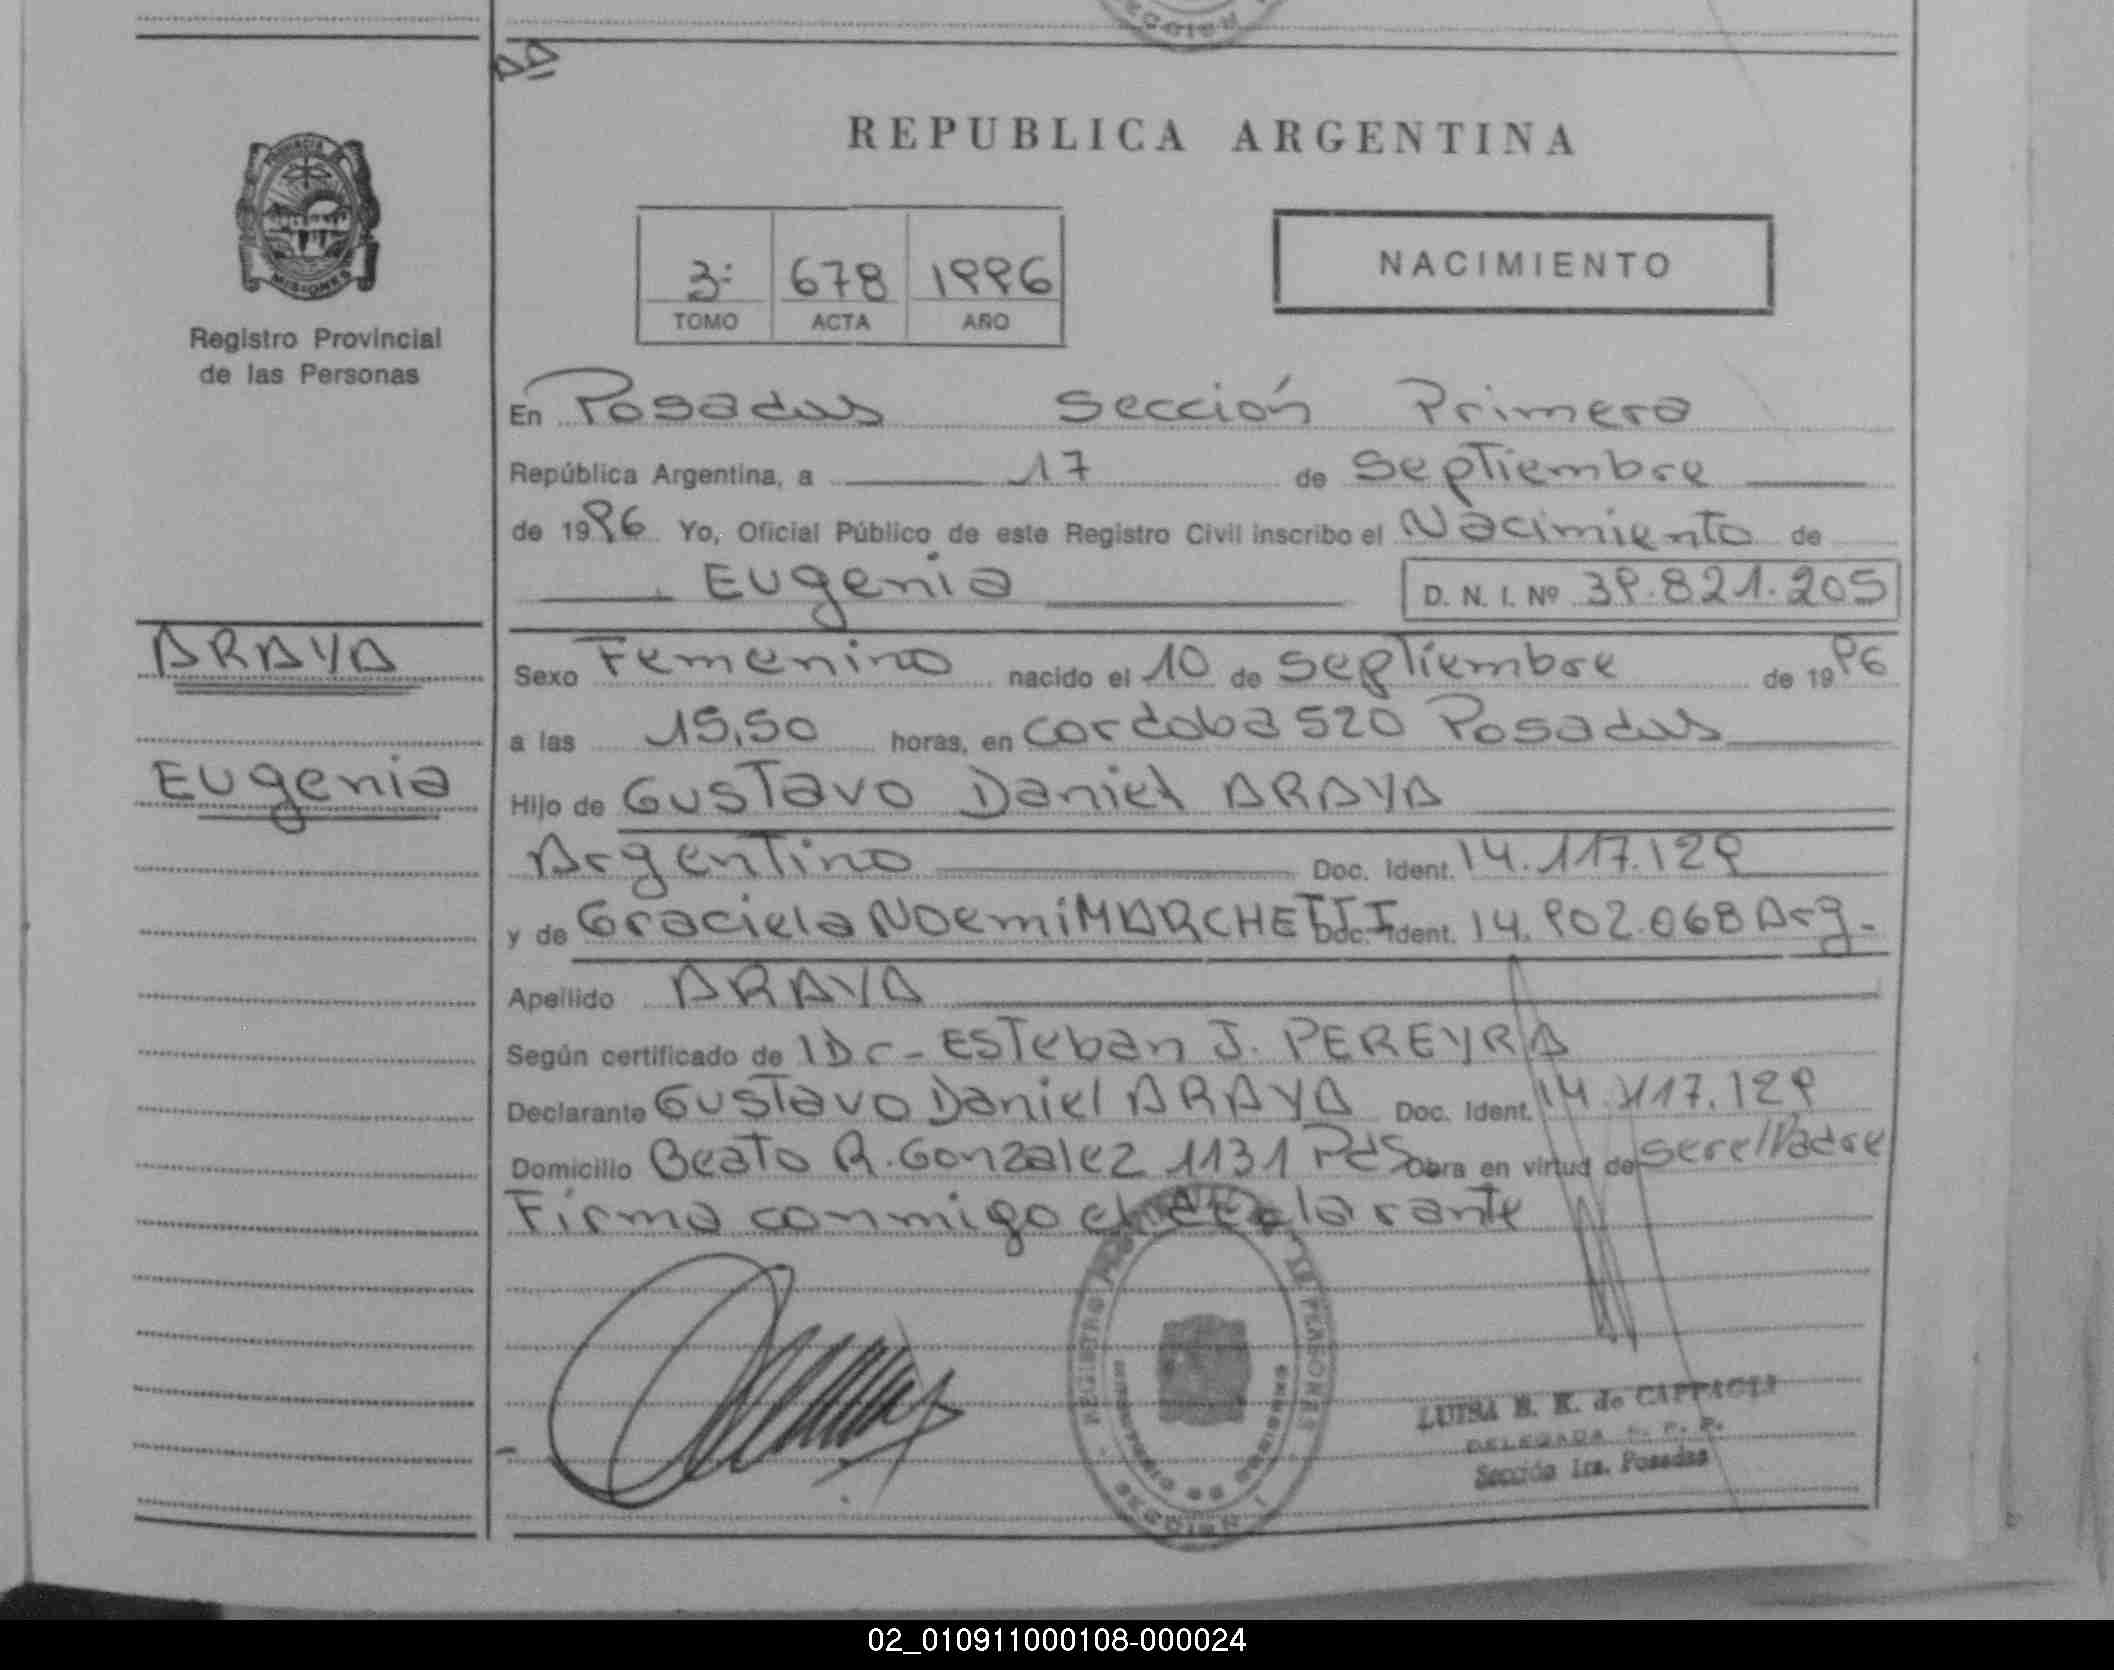 REPUBLICA ARGENTINA
PROVINCIA
MISIONES
Registro Provincial
de las Personas
3º 678 1996
TOMO ACTA AÑO
NACIMIENTO
En Posadas Sección Primera
República Argentina, a 17 de Septiembre
de 1996 Yo, Oficial Público de este Registro Civil inscribo el Nacimiento de
Eugenia D. N. I. Nº 39.821.205
ARAYA
Eugenia
Sexo Femenino nacido el 10 de Septiembre de 1996
a las 15,50 horas, en Cordoba 520 Posadas
Hijo de Gustavo Daniel ARAYA
Argentino Doc. Ident. 14.117.129
y de Graciela Noemi MARCHETTI Doc. Ident. 14.902.068 Arg.
Apellido ARAYA
Según certificado de Esteban J. PEREYRA
Declarante Gustavo Daniel ARAYA Doc. Ident. 14.117.129
Domicilio Beato R. Gonzalez 1131 Pdas Obra en virtud de ser el Padre
Firma conmigo el declarante
REGISTRO PERSONAS
MISIONES
LUISA B. K. de
DELEGADA R. P. P.
Sección 1ra. Posadas
02_010911000108-000024